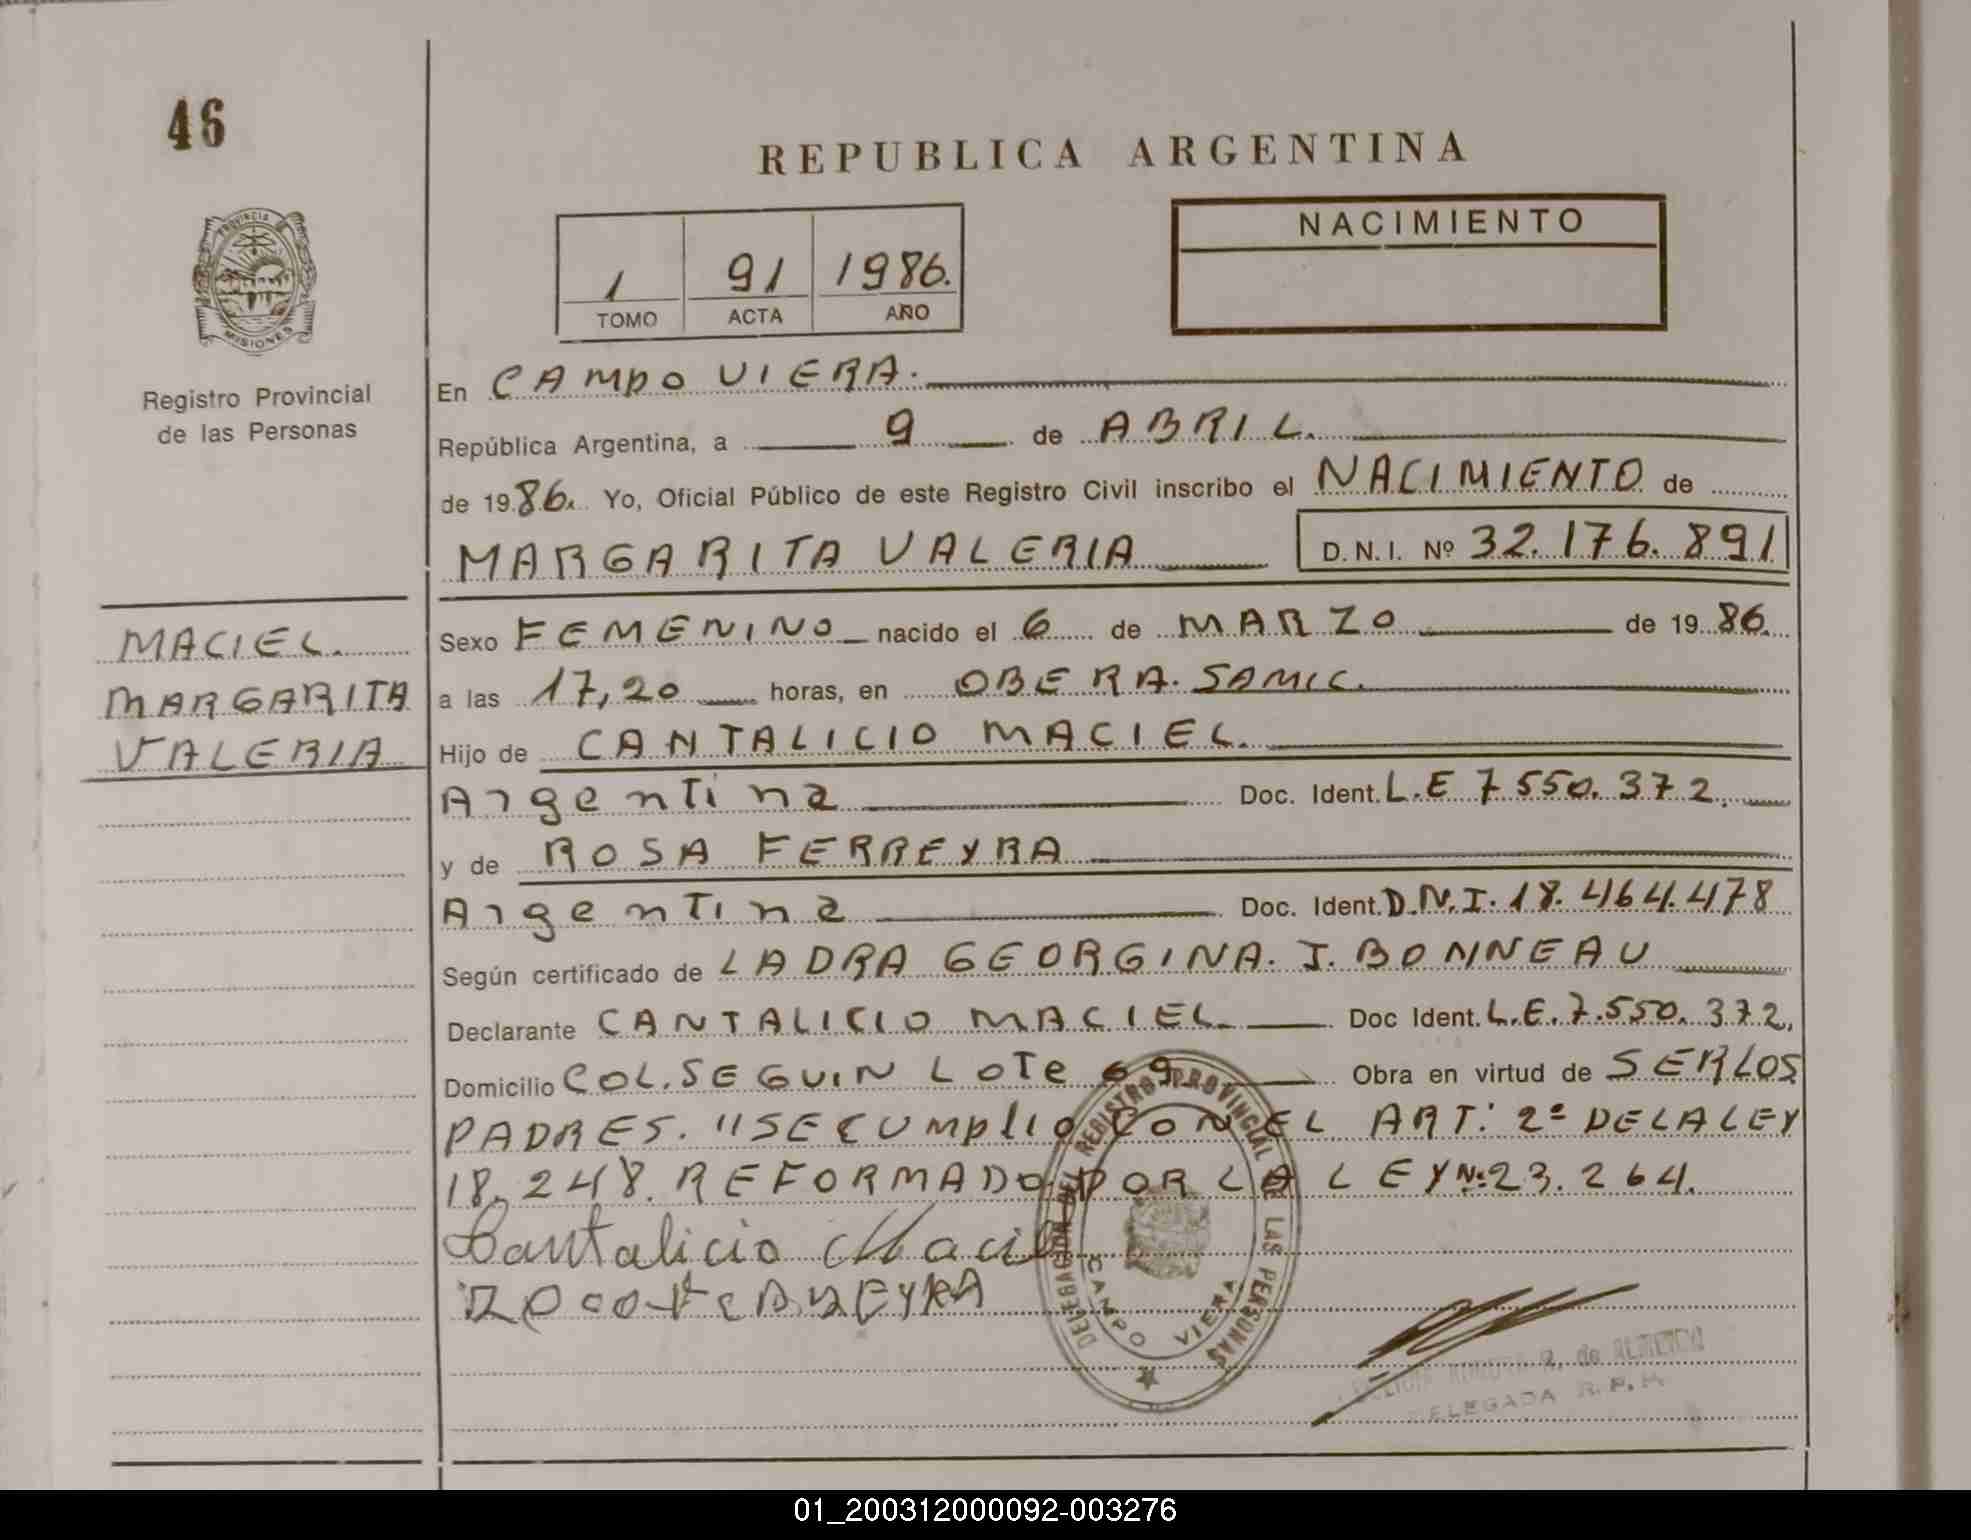 46
REPUBLICA ARGENTINA
PROVINCIA DE
MISIONES
Registro Provincial
de las Personas
NACIMIENTO
1 91 1986.
TOMO ACTA AÑO
En CAMPO VIERA.
República Argentina, a 9 de ABRIL.
de 1986. Yo, Oficial Público de este Registro Civil inscribo el NACIMIENTO de
MARGARITA VALERIA D.N.I. Nº 32.176.891
MACIEL.
MARGARITA
VALERIA
Sexo FEMENINO nacido el 6 de MARZO de 1986.
a las 17,20 horas, en OBERA. SAMIC.
Hijo de CANTALICIO MACIEL.
Argentina Doc. Ident. L.E 7550.372.
y de ROSA FERREYRA
Argentina Doc. Ident. D.N.I. 18.464.478
Según certificado de LADRA GEORGINA. I. BONNEAU
Declarante CANTALICIO MACIEL. Doc Ident. L.E. 7.550.372.
Domicilio COL. SEGUIN LOTE 69 Obra en virtud de SERLOS
PADRES. "SE CUMPLIO CON EL ART: 2º DE LA LEY
18.248. REFORMADO POR LA LEY Nº 23.264.
Cantalicio Maciel
DELEGACION DEL REGISTRO PROVINCIAL DE LAS PERSONAS
CAMPO VIERA
R. de ALMEIDA
DELEGADA R.P.P.
01_200312000092-003276